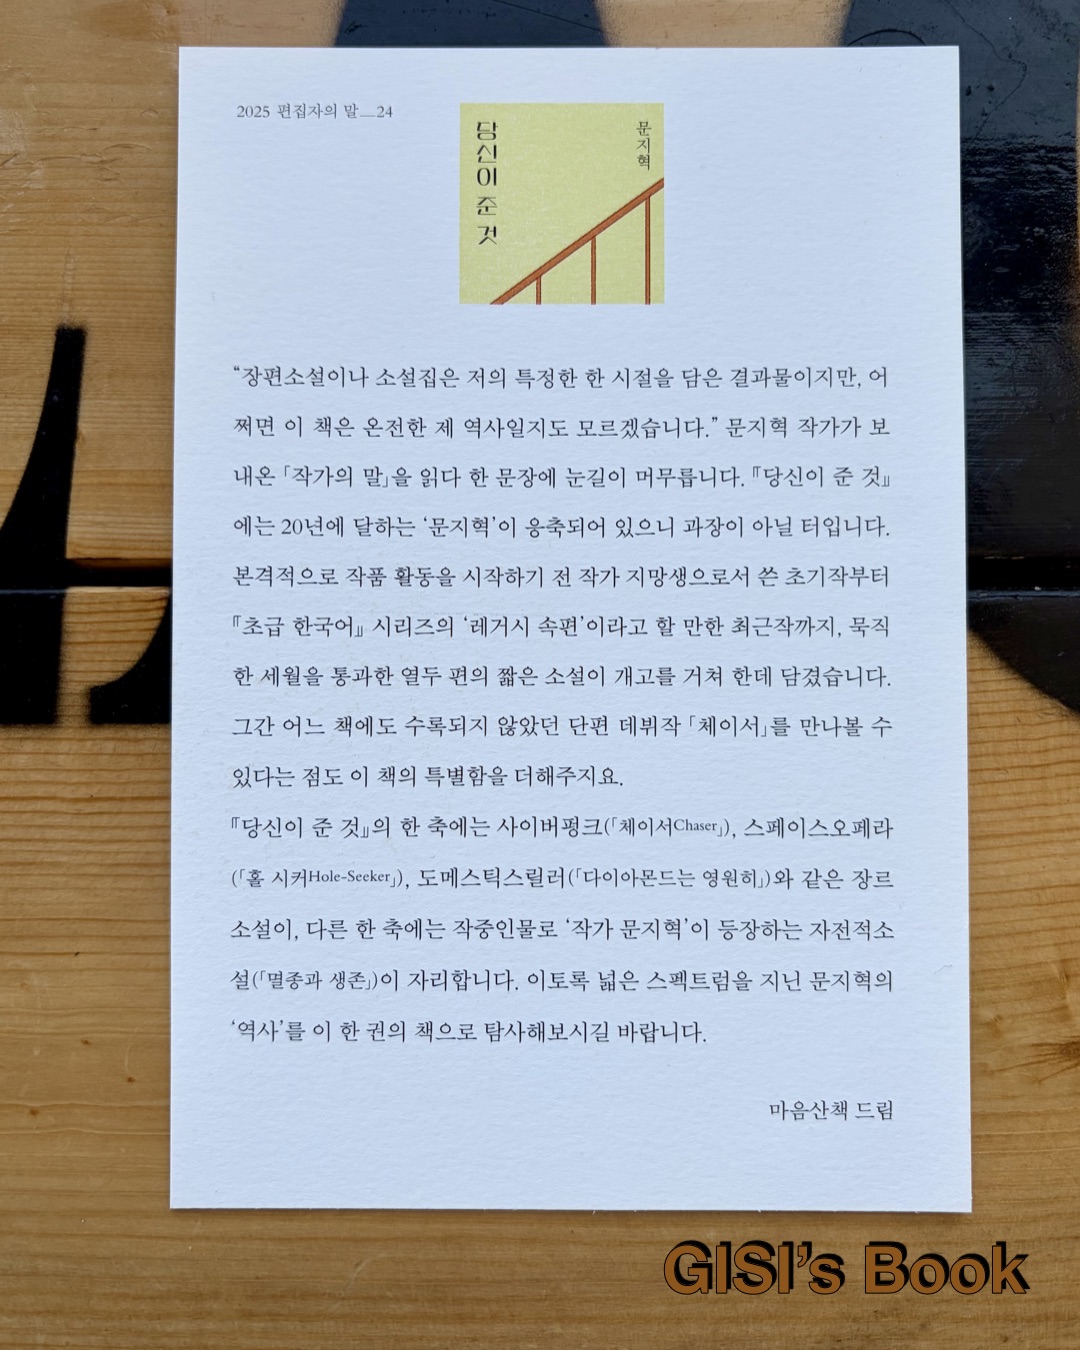 2025 편집자의 말__24
당신이 준 것
문지혁
“장편소설이나 소설집은 저의 특정한 한 시절을 담은 결과물이지만, 어
쩌면 이 책은 온전한 제 역사일지도 모르겠습니다.” 문지혁 작가가 보
내온 「작가의 말」을 읽다 한 문장에 눈길이 머무릅니다. 『당신이 준 것』
에는 20년에 달하는 ‘문지혁’이 응축되어 있으니 과장이 아닐 터입니다.
본격적으로 작품 활동을 시작하기 전 작가 지망생으로서 쓴 초기작부터
『초급 한국어』 시리즈의 ‘레거시 속편’이라고 할 만한 최근작까지, 묵직
한 세월을 통과한 열두 편의 짧은 소설이 개고를 거쳐 한데 담겼습니다.
그간 어느 책에도 수록되지 않았던 단편 데뷔작 「체이서」를 만나볼 수
있다는 점도 이 책의 특별함을 더해주지요.
『당신이 준 것』의 한 축에는 사이버펑크(「체이서Chaser」), 스페이스오페라
(「홀 시커Hole-Seeker」), 도메스틱스릴러(「다이아몬드는 영원히」)와 같은 장르
소설이, 다른 한 축에는 작중인물로 ‘작가 문지혁’이 등장하는 자전적소
설(「멸종과 생존」)이 자리합니다. 이토록 넓은 스펙트럼을 지닌 문지혁의
‘역사’를 이 한 권의 책으로 탐사해보시길 바랍니다.
마음산책 드림
GISI’s Book